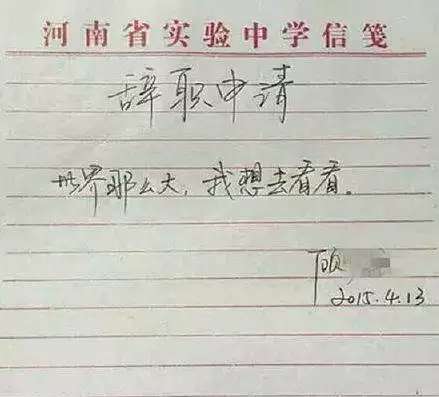 河南省实验中学信笺
辞职申请
世界那么大,我想去看看。
顾
2015.4.13